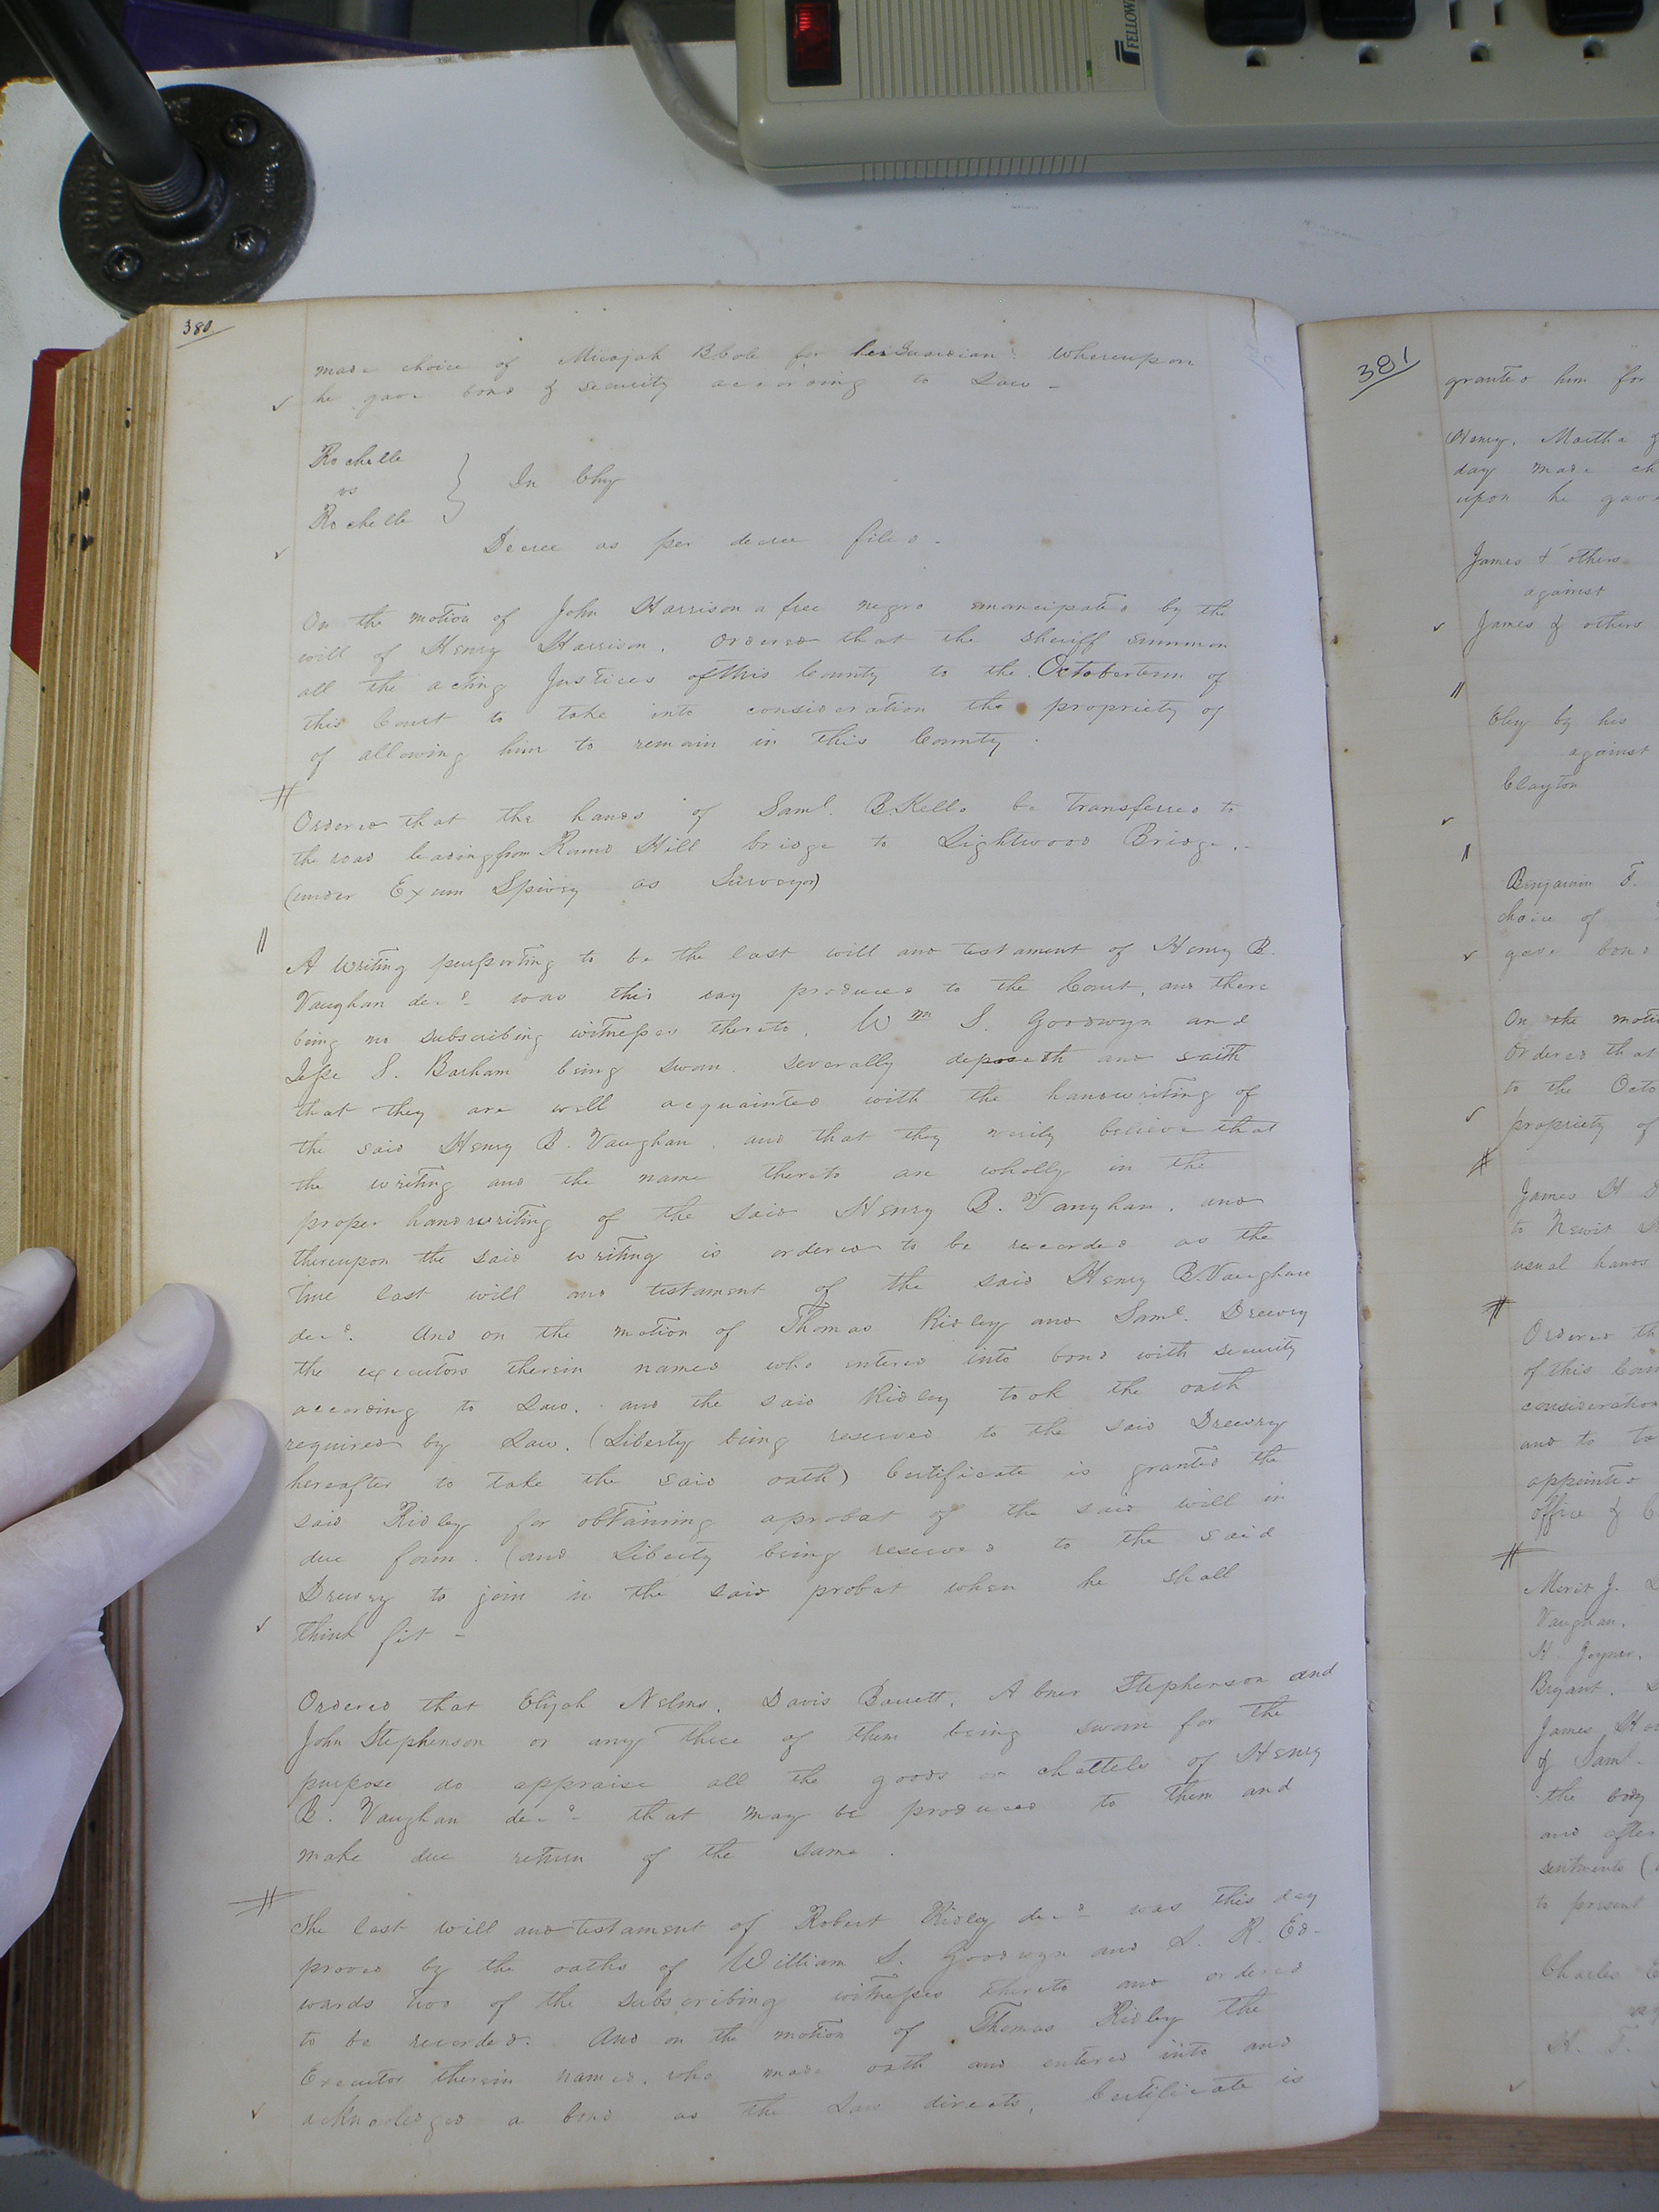 FELLOW
380.
made choice of Micajah for his Guardian: Whereupon
he gave bond & security according to Law -
Rochelle
vs
Rochelle
In Chy
Decree as per decree filed -
On the motion of John Harrison a free negro emancipated by the
will of Henry Harrison. Ordered that the sheriff summon
all the acting Justices of this County to the October term of
this Court to take into consideration the propriety of
of allowing him to remain in this County.
Ordered that the hands of Saml. B. Kello be transferred to
the road leading from Round Hill bridge to Lightwood Bridge.-
(under Exum Spivey as Surveyor)
A Writing purporting to be the last will and testament of Henry B.
Vaughan decd. was this day produced to the Court, and there
being no subscribing witnesses thereto. Wm S. Goodwyn and
Jesse S. Barham being sworn, severally deposeth and saith
that they are well acquainted with the handwriting of
the said Henry B. Vaughan, and that they verily believe that
the writing and the name thereto are wholly in the
proper handwriting of the said Henry B. Vaughan, and
thereupon the said writing is ordered to be recorded as the
true last will and testament of the said Henry B. Vaughan
decd. And on the motion of Thomas Ridley and Saml. Drewry
the executors therein named who entered into bond with security
according to Law, and the said Ridley took the oath
required by Law, (Liberty being reserved to the said Drewry
hereafter to take the said oath) Certificate is granted the
said Ridley for obtaining a probat of the said will in
due form. (and Liberty being reserved to the said
Drewry to join in the said probat when he shall
think fit -
Ordered that Elijah Nelms, Davis Barrett, Abner Stephenson and
John Stephenson or any three of them being sworn for the
purpose do appraise all the goods or chattels of Henry
B. Vaughan decd. that may be produced to them and
make due return of the same.
The last will and testament of Robert Ridley decd. was this day
proved by the oaths of William S. Goodwyn and L. R. Ed-
wards two of the subscribing witnesses thereto and ordered
to be recorded. And on the motion of Thomas Ridley the
Executor therein named, who made oath and entered into and
acknowledged a bond as the Law directs, Certificate is
381
granted him for
Henry, Martha &
day made ch
upon he gave
James & others
against
James & others
Eley by his
against
Clayton
Benjamin F.
choice of
gave bond
On the moti
Ordered that
to the Octo
propriety of
James H
to Newit
usual hands
Ordered th
of this Coun
consideration
and to ta
appointed
office & C
Merit J.
Vaughan,
H. Joyner,
Bryant,
James
& Saml.
the body
and after
sentments (
to present
Charles
H. T.